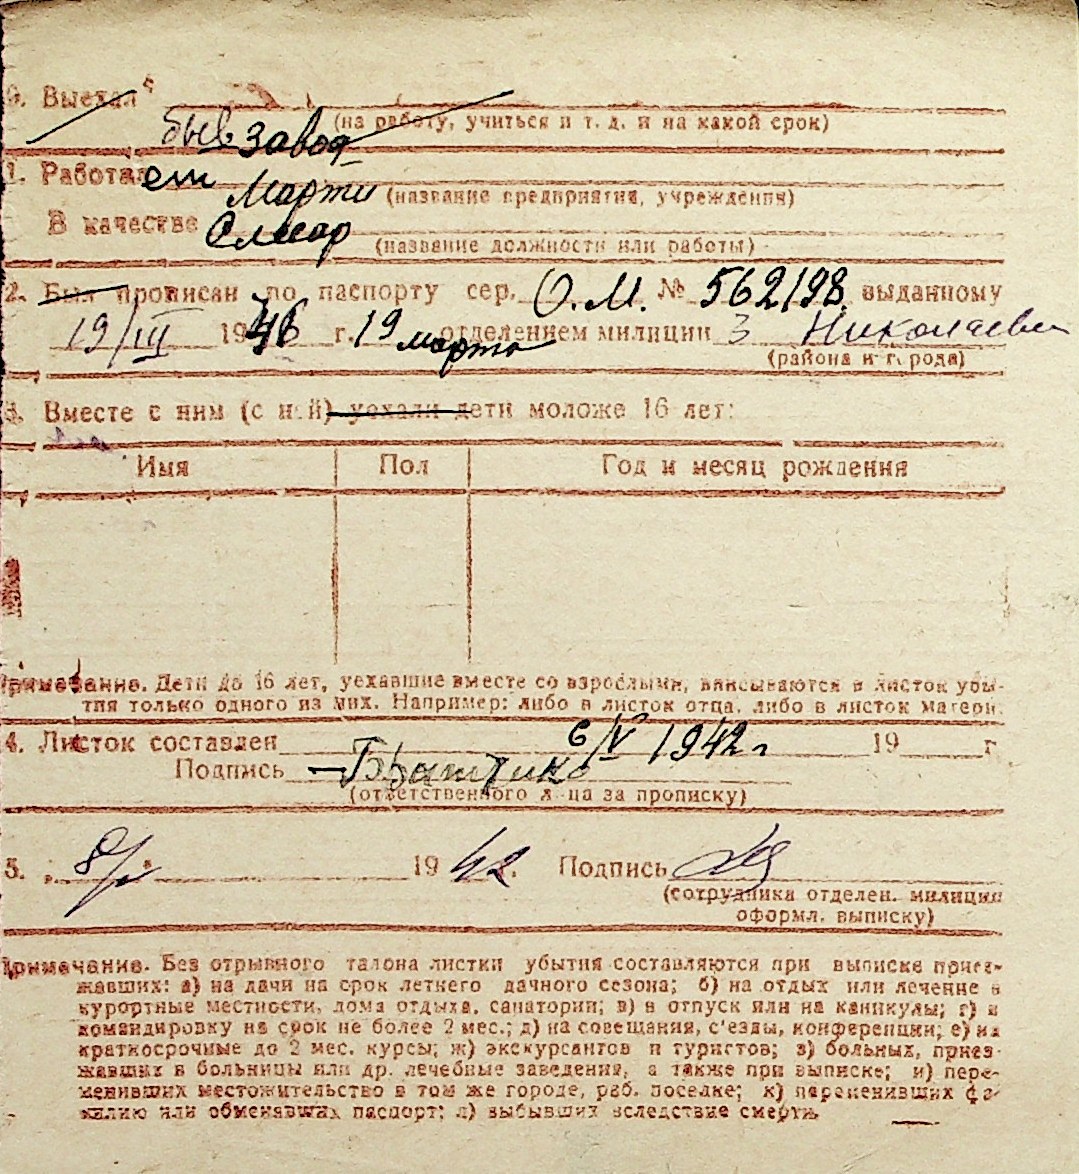 9. Выехал
быв завод
(на работу, учиться и т. д. и на какой срок)
1. Работает Марти
(название предприятия, учреждения)
В качестве Слесар
(название должности или работы)
2. Был прописан по паспорту сер. О.М. № 562198 выданному
19/III 19 г. 19 марта отделением милиции 3 Николаеви
(района и города)
3. Вместе с ним (с ней) уехали дети моложе 16 лет:
Имя Пол Год и месяц рождения
Примечание. Дети до 16 лет, уехавшие вместе со взрослыми, вписываются в листок убы-
тия только одного из них. Например: либо в листок отца, либо в листок матери.
4. Листок составлен 6/V 1942 г 19 г
Подпись
(ответственного лица за прописку)
5. 8/V 19 42. Подпись
(сотрудника отделен. милиции
оформл. выписку)
Примечание. Без отрывного талона листки убытия составляются при выписке приез-
жавших: а) на дачи на срок летнего дачного сезона; б) на отдых или лечение в
курортные местности, дома отдыха, санатории; в) в отпуск или на каникулы; г) в
командировку на срок не более 2 мес.; д) на совещания, с'езды, конференции; е) на
краткосрочные до 2 мес. курсы; ж) экскурсантов и туристов; з) больных, приез-
жавших в больницы или др. лечебные заведения, а также при выписке; и) пере-
менивших местожительство в том же городе, раб. поселке; к) переменивших фа-
милию или обменявших паспорт; л) выбывших вследствие смерти.